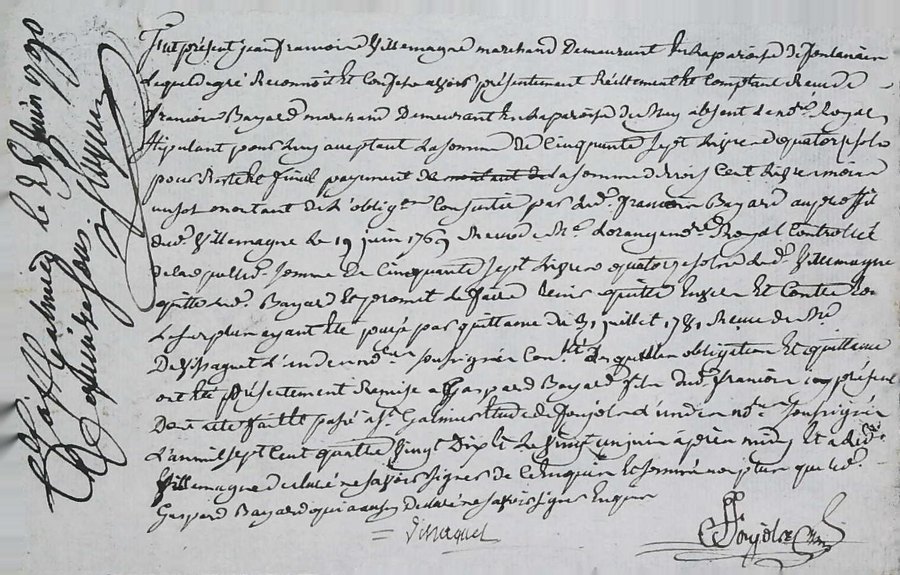 Fut présent jean francois Villemagne marchand Demeurant En la paroisse de
Lequel de gré Reconnoit Et Confesse avoir présentement Réellement Et Comptant Receu de
francois Bayard marchand Demeurant En la paroisse de absent le no.re Royal
Stipulant pour luy acceptant La somme De Cinquante sept Livres quatorze sols
pour Reste Et final payement de montant de la somme de trois Cent Livres moins
un sol montant de L'oblig.on Consentie par led. francois Bayard au proffit
dud. Villemagne Le 19 juin 1769 Receue de M.e no.re Royal Controllée
de laquelle somme De Cinquante sept Livres quatorze sols led. Villemagne
quitte led. Bayard Et promet Le faire tenir quitte Envers Et Contre tous
Le surplus ayant été payé par quittance du 31 juillet 1781 Receue du M.e
no.re soussigné Con.lée Laquelle obligation Et quittance
ont été présentement Remise a Gaspard Bayard fils dud. francois icy présent
Dont acte faitte passé a S.t Galmier Etude de no.re soussigné
L'an mil sept Cent quatre Vingt Dix Et Le Vingt un juin après midy Et a led.
Villemagne declaré ne savoir signer de Ce Enquis Et sommé non plus que led.
Gaspard Bayard qui a aussy Declaré ne savoir signer Enquis
Con.lé a S.t Galmier le 3 juin 1790
Reçu quinze sols